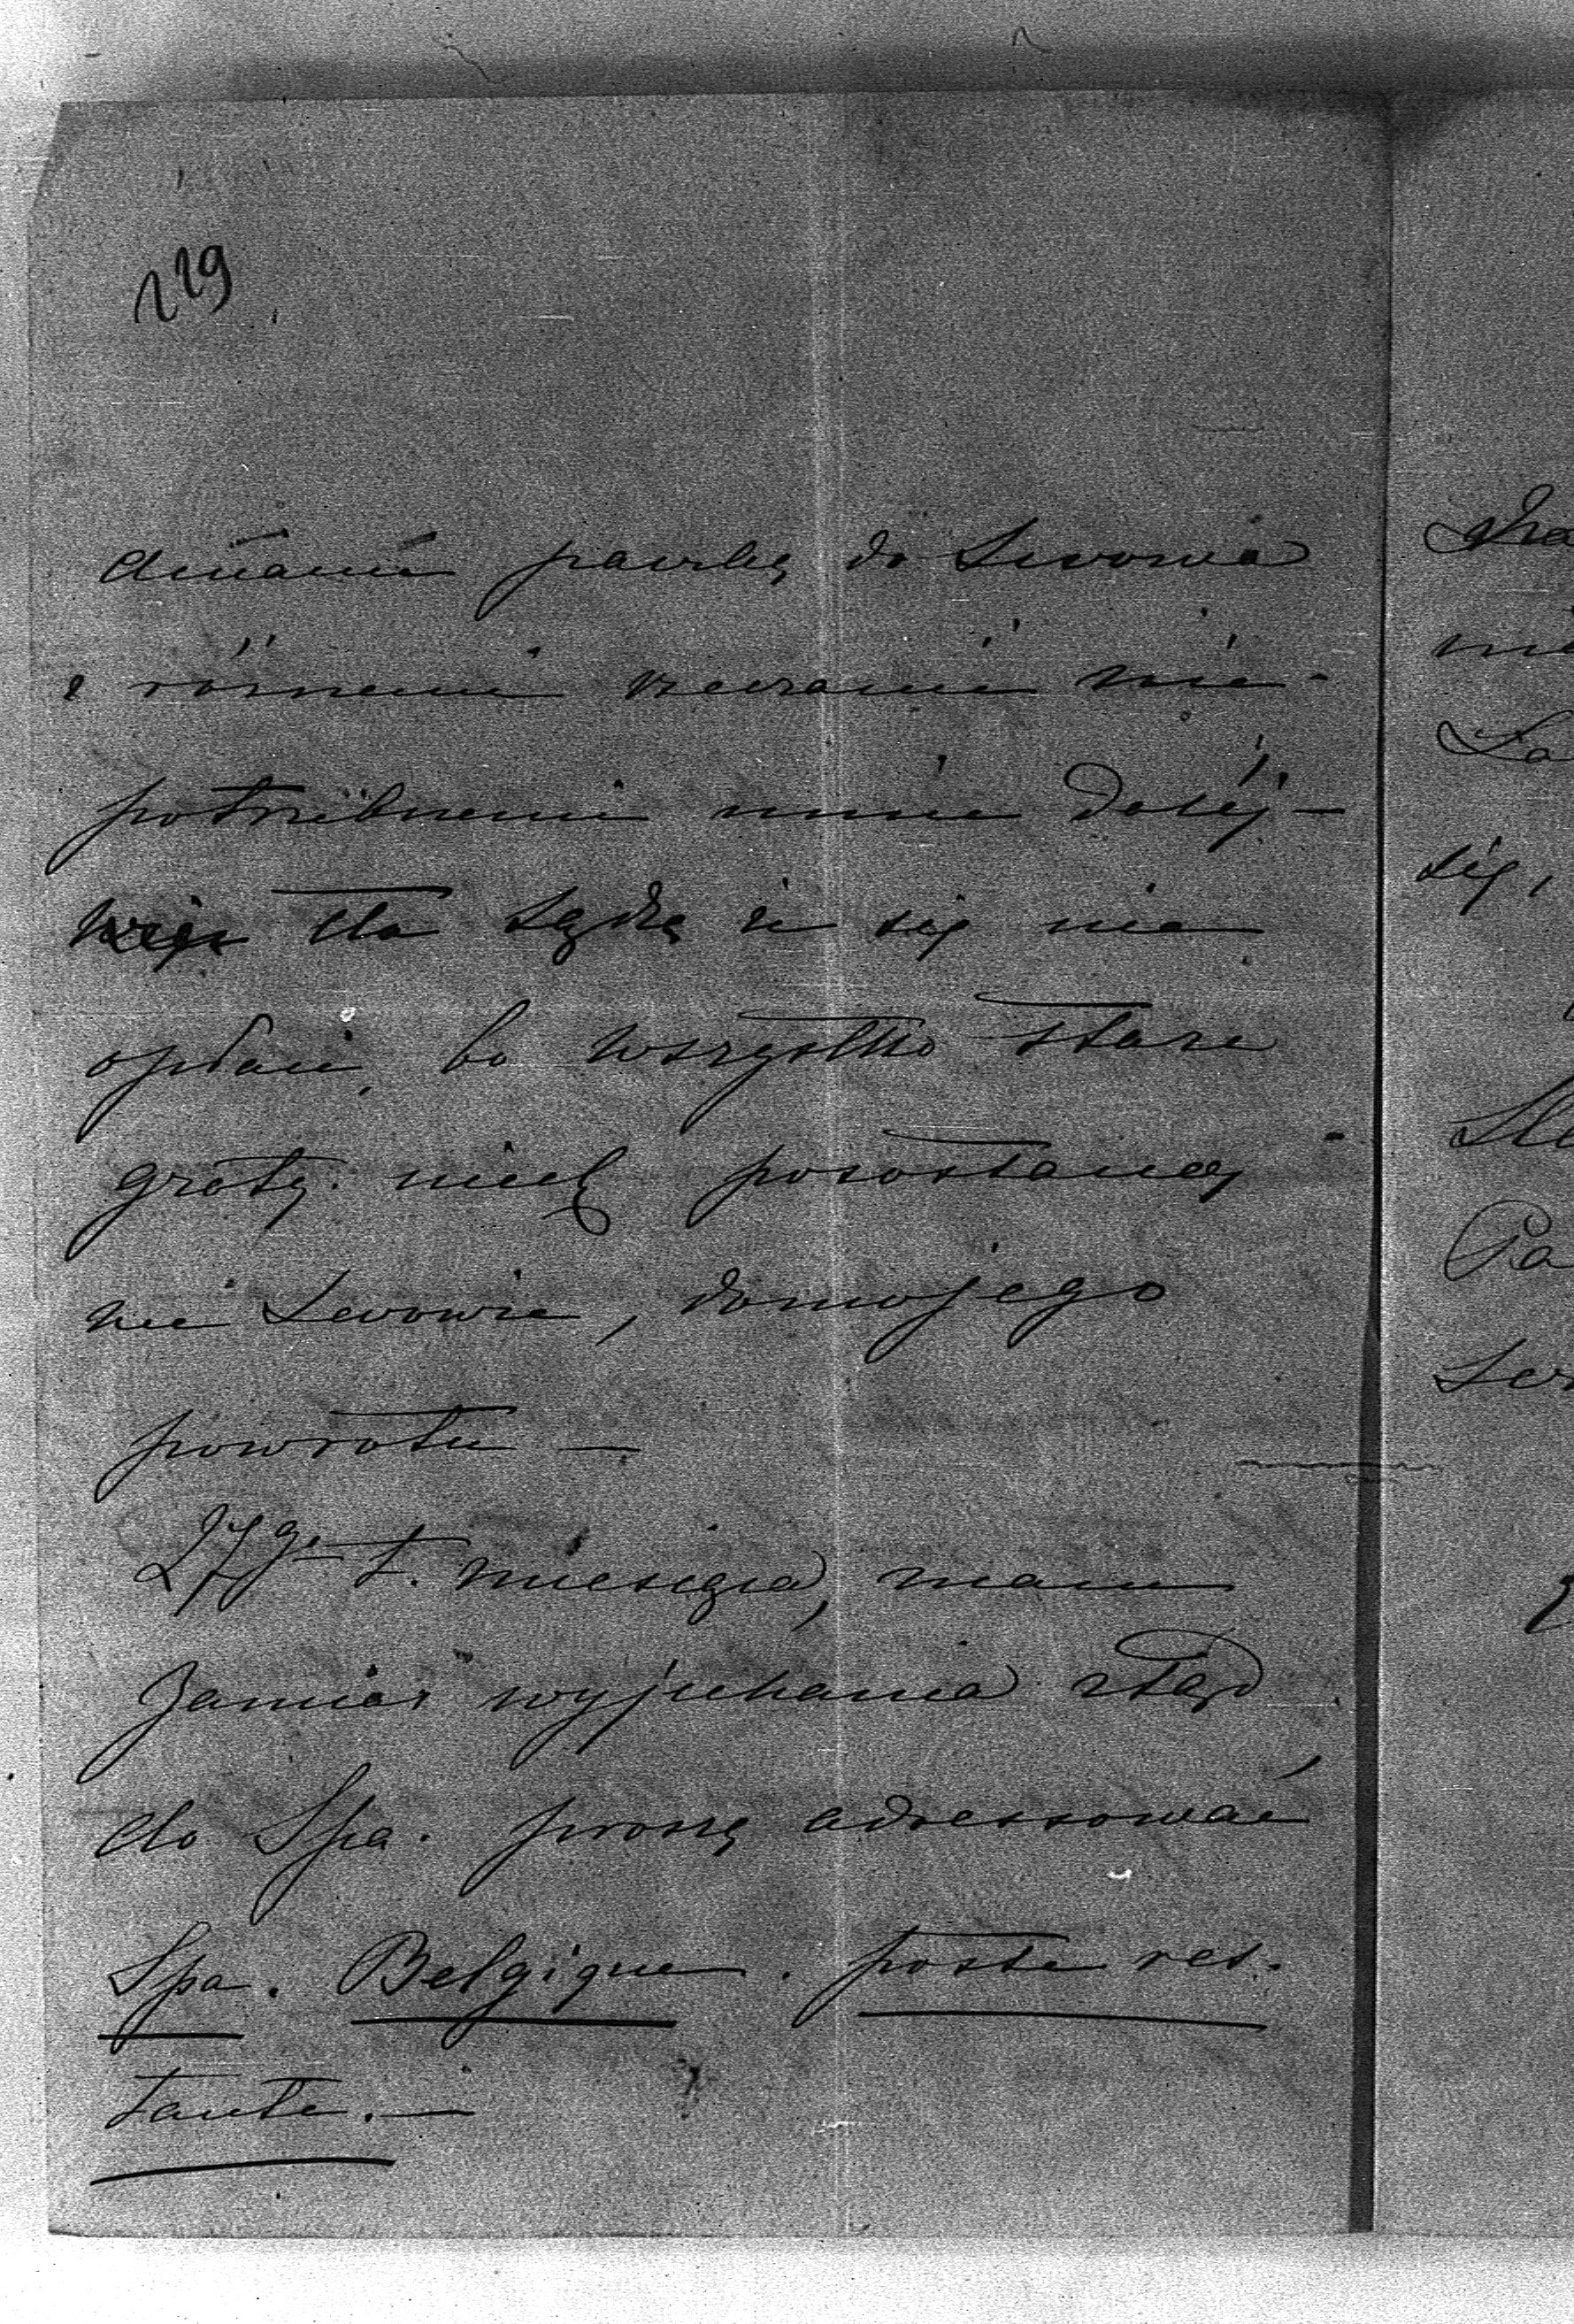 229
paczkę do Lwowa
z różnemi rzeczami nie-
potrzebnemi mnie daléj —
cła sądzę że się nie
opłaci, bo wszystko stare
graty. niech pozostaną
we Lwowie, do mojego
powrotu —
27go t. miesiąca, mam
zamiar wyjechania ztąd
do Spa. proszę adressować
Spa. Belgique. poste res-
tante. —
się,